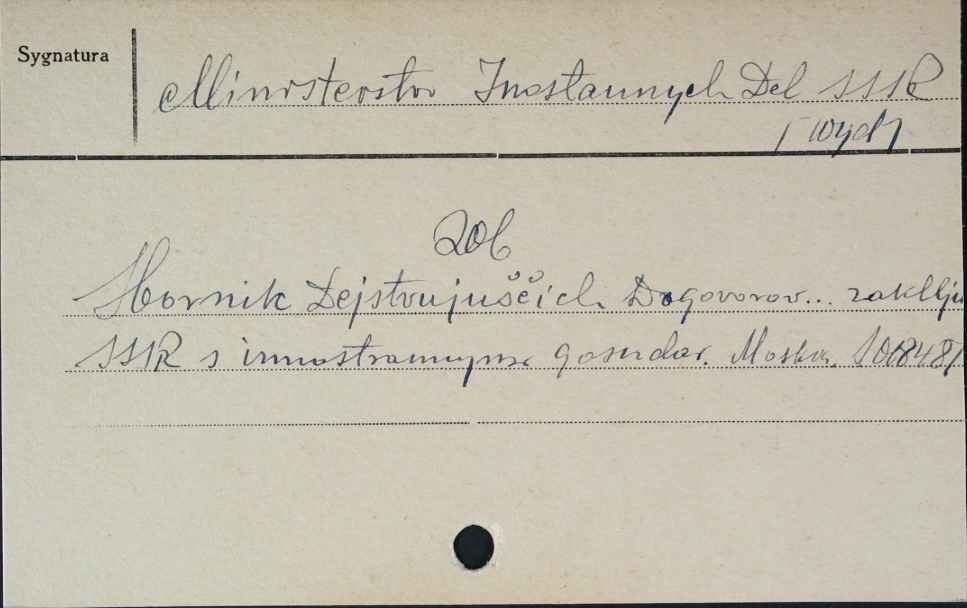 Sygnatura
Ministerstvo Inostannych Del SSSR
[wyd]
206
Sbornik Dejstvujuščich Dogovorov... zaklju
SSSR s innostrannymi gosudar. Moskva.